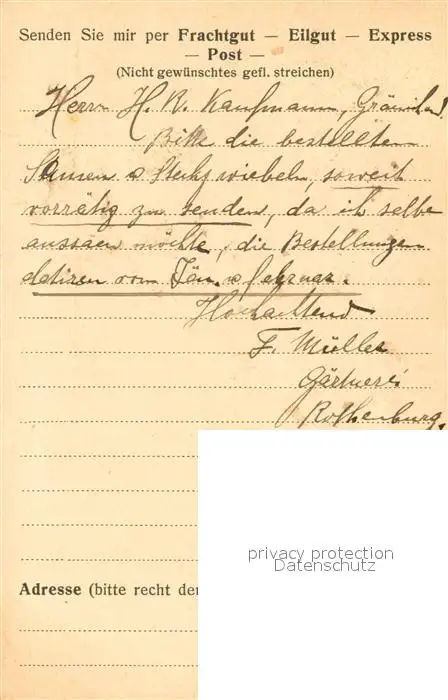 Senden Sie mir per Frachtgut — Eilgut — Express
— Post —
(Nicht gewünschtes gefl. streichen)
Herrn H. R. Kaufmann,
Bitte die bestellten
Samen u Steckzwiebeln, soweit
vorrätig zu senden, da ich selbe
aussäen möchte, die Bestellungen
datiren vom Jän. u Februar.
Hochachtend
F. Müller
Gärtnerei
Rothenburg.
privacy protection
Datenschutz
Adresse (bitte recht de